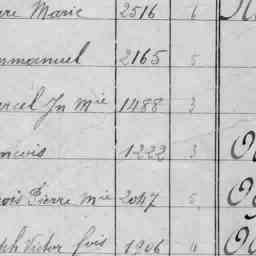 Marie 2516 6
mmanuel 2165 5
Jn Mie 1488 3
ncois 1222 3
ois Pierre Mie 2047 5
ph Victor fois 1906 4